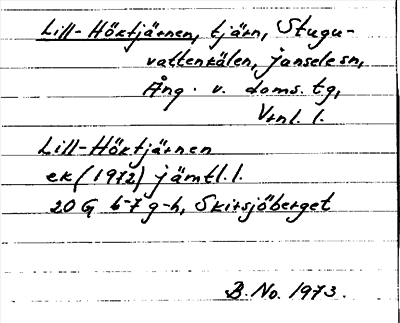 Lill-Höktjärnen, tjärn, Stugu-
vattenkälen, Junsele sn,
Ång. v. doms. tg,
Vrnl. l.
Lill-Höktjärnen
ek (1972) jämtl. l.
20 G 6-7 g-h, Skirsjöberget
B. No. 1973.